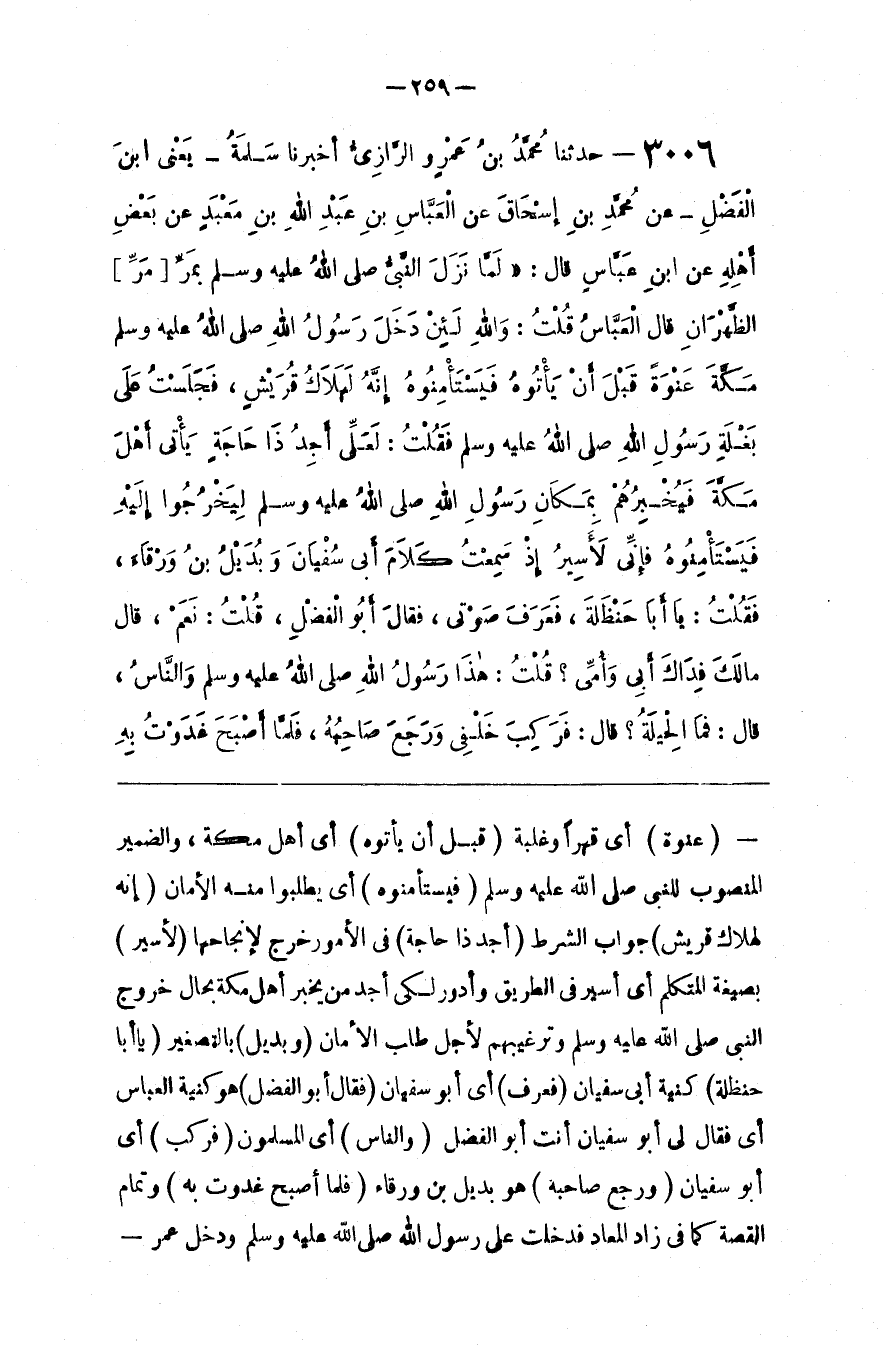 — ٢٥٩ —
٣٠٠٦ — حدثنا مُحَمَّدُ بنُ عَمْرٍو الرَّازِىُّ أخبرنا سَـلمَةُ ـ يَعْنى ابنَ
الْفَضْلِ ـ عن مُحمَّدِ بنِ إسْحَاقَ عن الْعَبَّاسِ بنِ عَبْدِ اللهِ بنِ مَعْبَدٍ عن بَعْضِ
أَهْلِهِ عن ابنِ عَبَّاسٍ قال : « لَمَّا نَزَلَ النَّبىُّ صلى اللهُ عليه وسـلم بمَرِّ [ مَرَّ ]
الظَّهْرَانِ قال الْعَبَّاسُ قُلْتُ : وَاللهِ لَـئِنْ دَخَلَ رَسُولُ اللهِ صلى اللهُ عليه وسلم
مَـكَّةَ عَنْوَةً قَبْلَ أَنْ يَأْتُوهُ فَيَسْتَأْمِنُوهُ إِنَّهُ لَهَلَاكُ قُرَيْشٍ ، فَجَلَسْتُ عَلَى
بَغْـلَةِ رَسُولِ اللهِ صلى اللهُ عليه وسلم فَقُلْتُ : لَعَـلِّى أَجِدُ ذَا حَاجَةٍ يَأْتى أَهْلَ
مَـكَّةَ فَيُخْـبِرُهُمْ بِمَـكَانِ رَسُولِ اللهِ صلى اللهُ عليه وسـلم لِيَخْرُجُوا إِلَيْهِ
فَيَسْتَأْمِنُوهُ فإنِّى لَأَسِيرُ إِذْ سَمِعْتُ كَلَامَ أَبى سُفْيَانَ وَ بُدَيْلُ بنُ وَرْقَاءَ ،
فَقُلْتُ : يا أَبَا حَنْظَلَةَ ، فَعَرَفَ صَوْتى ، فقالَ أَبُو الْفضْلِ ، قُلْتُ : نَعَمْ ، قال
مالَكَ فِدَاكَ أَبى وَأُمِّى ؟ قُلْتُ : هٰذَا رَسُولُ اللهِ صلى اللهُ عليه وسلم وَالنَّاسُ ،
قال : فَما الْحِيلَةُ ؟ قال : فَرَكِبَ خَلْـفِى وَرَجَعَ صَاحِبُهُ ، فَلَمَّا أَصْبَحَ غَدَوْتُ بِهِ
— ( عنوة ) أى قهراً وغلبة ( قبـل أن يأتوه ) أى أهل مكة ، والضمير
المنصوب للنبى صلى الله عليه وسلم ( فيستأمنوه ) أى يطلبوا منـه الأمان ( إنه
لهلاك قريش) جواب الشرط ( أجد ذا حاجة) فى الأمور خرج لإنجاحها (لأسير )
بصيغة المتكلم أى أسير فى الطريق وأدور لـكى أجد من يخبر أهل مكة بحال خروج
النبى صلى الله عليه وسلم وترغيبهم لأجل طلب الأمان (وبديل) بالتصغير ( ياأبا
حنظلة) كنية أبى سفيان (فعرف) أى أبو سفيان (فقال أبو الفضل) هو كنية العباس
أى فقال لى أبو سفيان أنت أبو الفضل ( والناس ) أى المسلمون ( فركب ) أى
أبو سفيان ( ورجع صاحبه ) هو بديل بن ورقاء ( فلما أصبح غدوت به ) وتمام
القصة كما فى زاد المعاد فدخلت على رسول الله صلى الله عليه وسلم ودخل عمر —